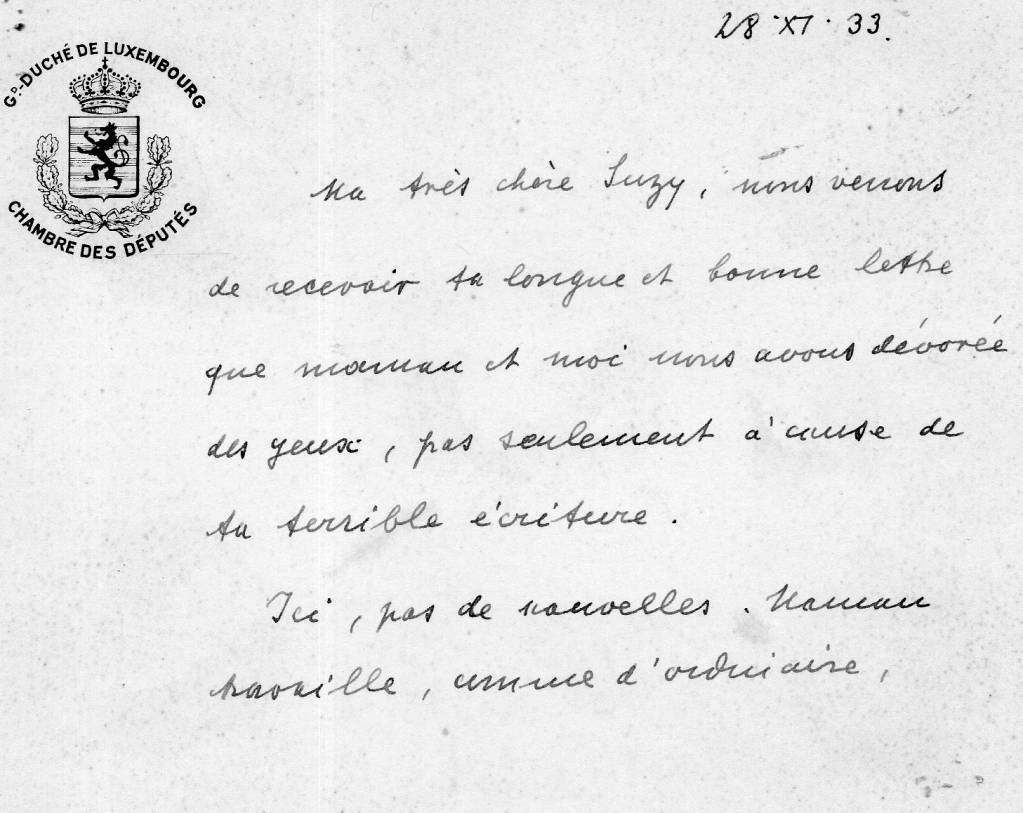 28·XI·33.
Gᴰ.-DUCHÉ DE LUXEMBOURG
CHAMBRE DES DÉPUTÉS
Ma très chère Suzy, nous venons
de recevoir ta longue et bonne lettre
que maman et moi nous avons dévorée
des yeux, pas seulement à cause de
ta terrible écriture.
Ici, pas de nouvelles. Maman
travaille, comme d'ordinaire,